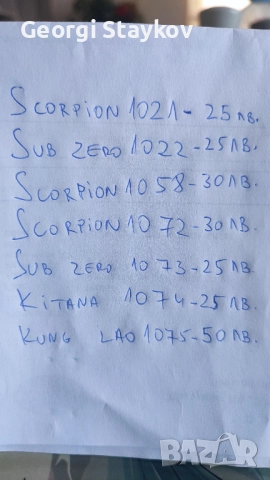 Georgi Staykov
SCORPION 1021 - 25 ЛВ.
SUB ZERO 1022 - 25 ЛВ.
SCORPION 1058 - 30 ЛВ.
SCORPION 1072 - 30 ЛВ.
SUB ZERO 1073 - 25 ЛВ.
KITANA 1074 - 25 ЛВ.
KUNG LAO 1075 - 50 ЛВ.
BAZAR